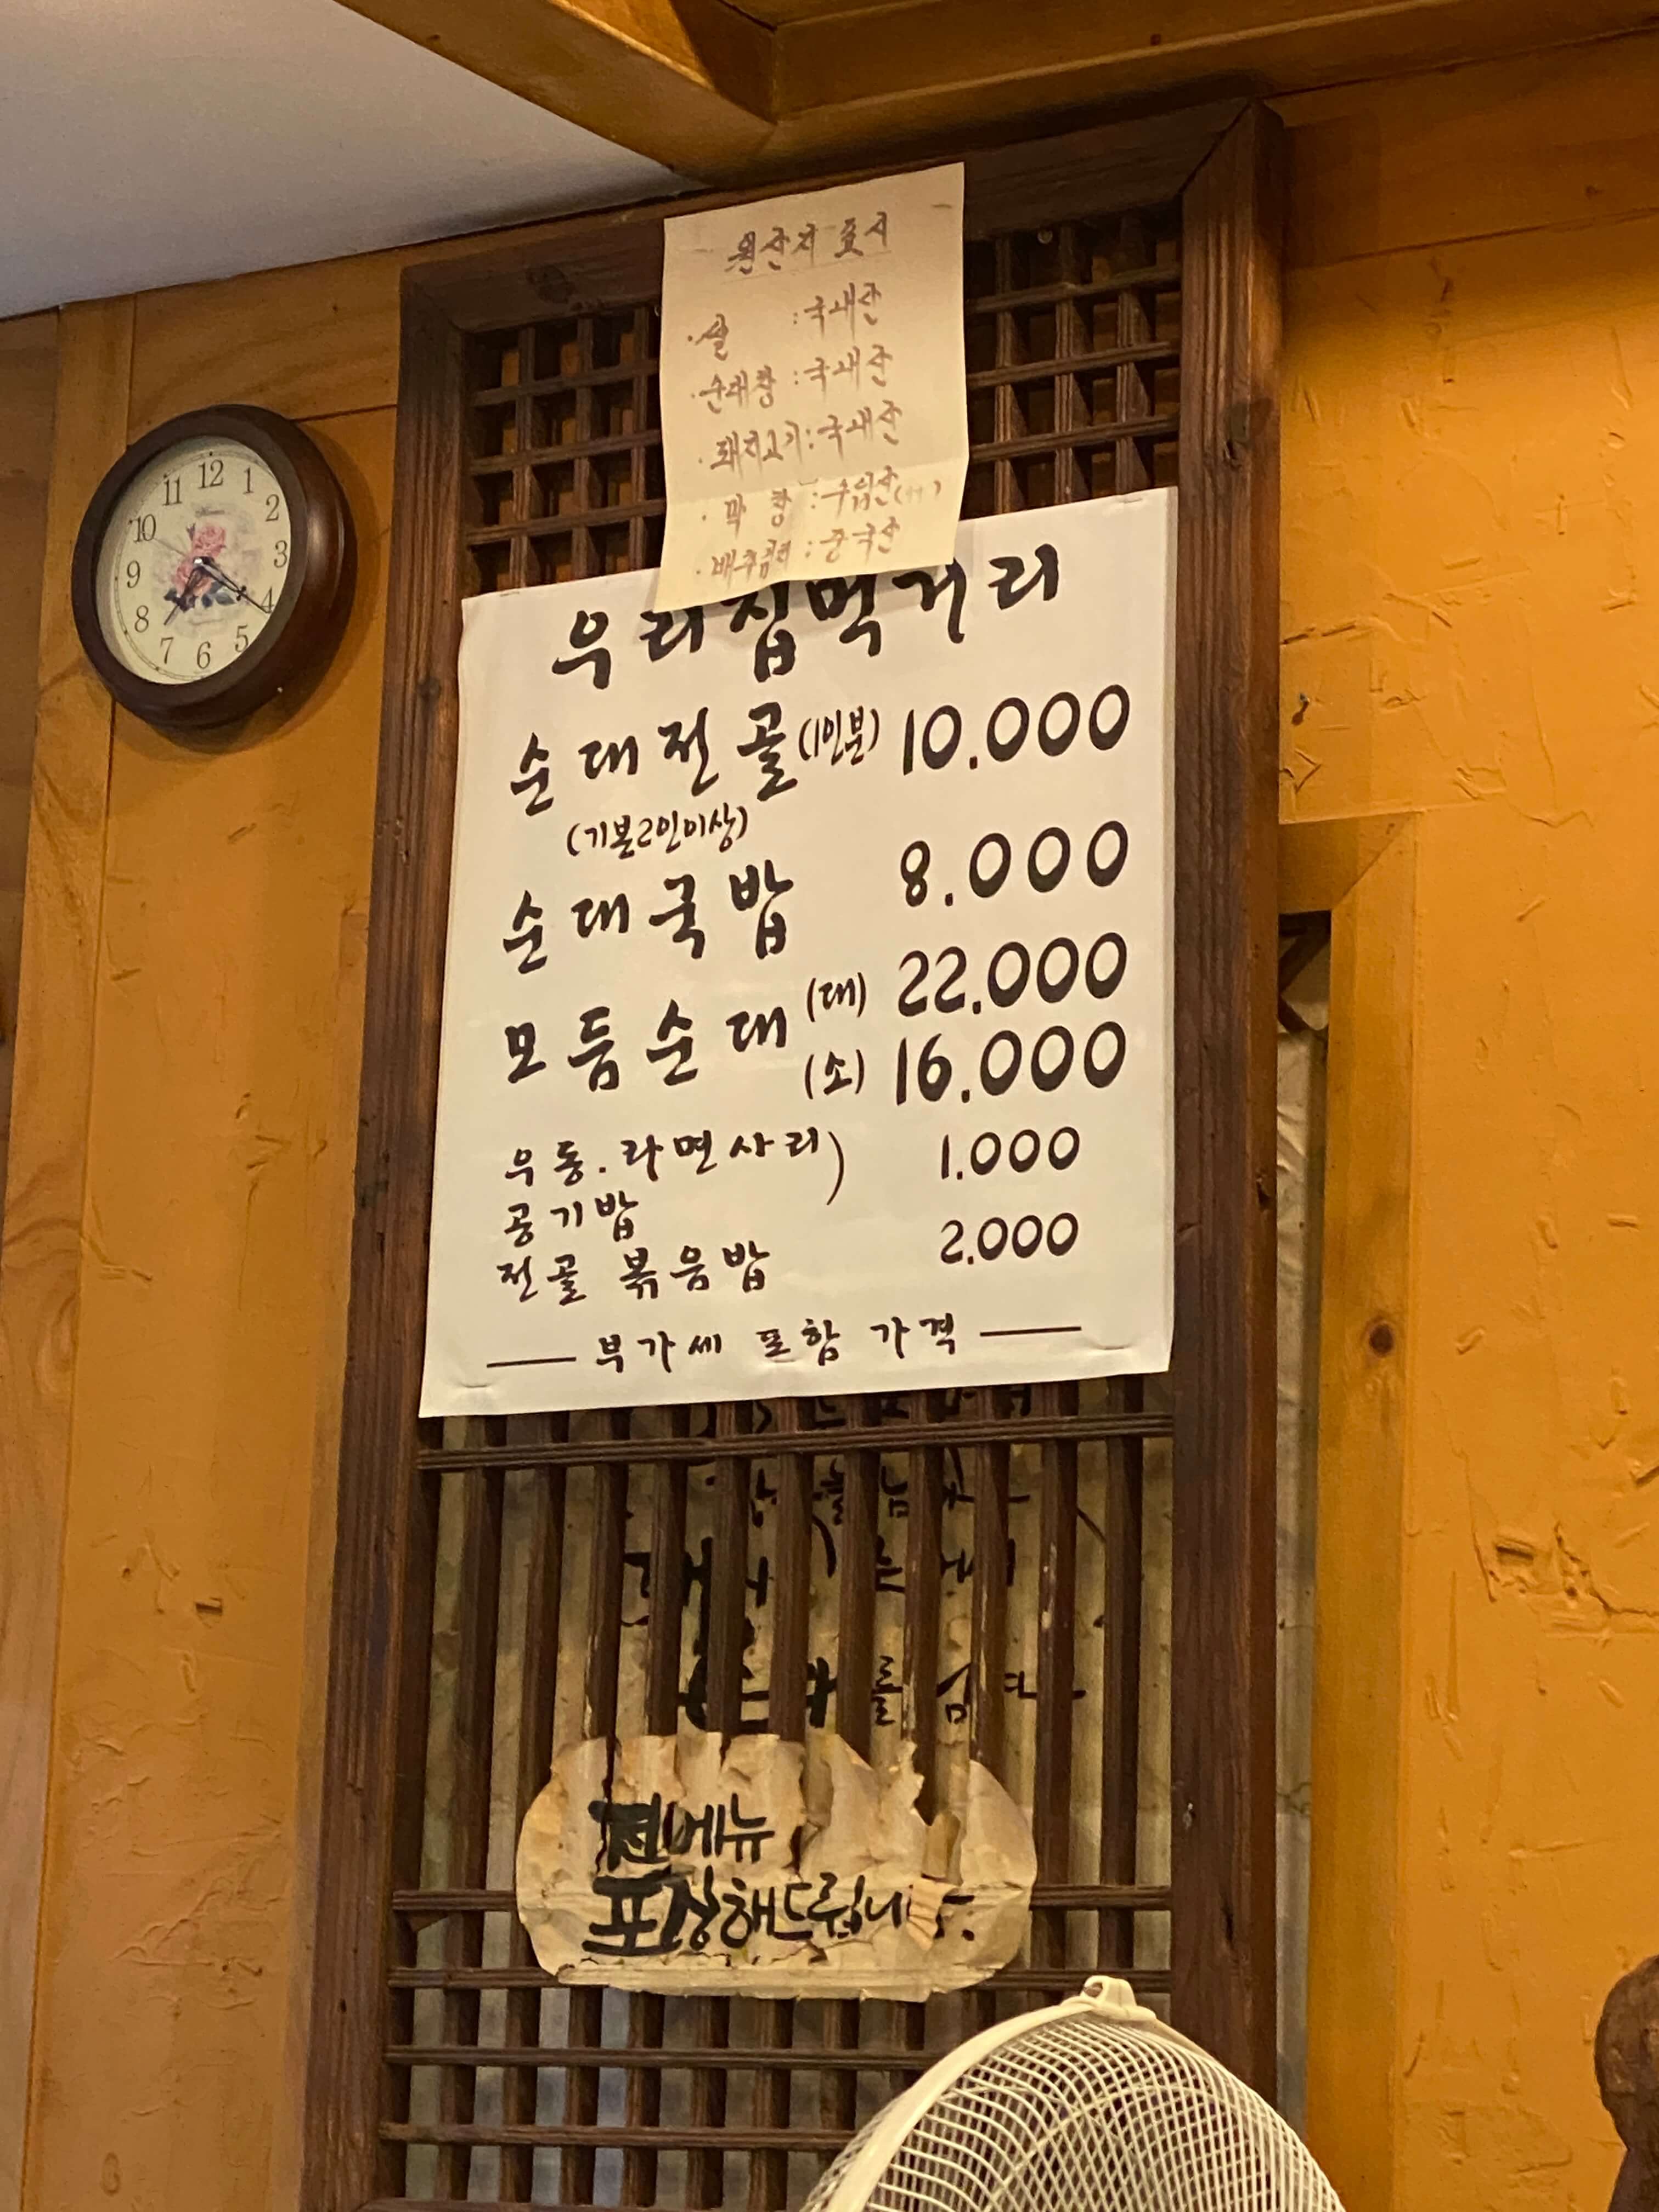 원산지 표시
·쌀 : 국내산
·순대창 : 국내산
·돼지고기 : 국내산
·막창 : 수입산
·배추김치 : 중국산
우리집먹거리
순대전골(1인분) 10.000
(기본2인이상)
순대국밥 8.000
모듬순대 (대) 22.000
(소) 16.000
우동.라면사리) 1.000
공기밥
전골 볶음밥 2.000
부가세 포함 가격
전메뉴
포장해드립니다.
12
1
2
3
4
5
6
7
8
9
10
11